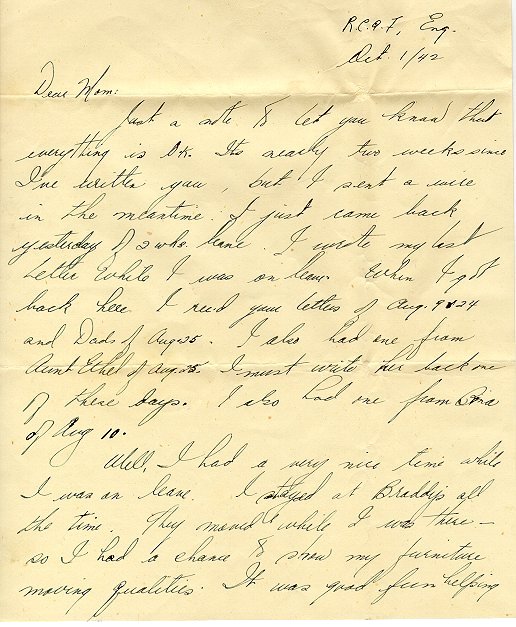 R.C.A.F., Eng.
Oct. 1/42
Dear Mom:
Just a note to let you know that
everything is O.K. Its nearly two weeks since
I've written you, but I sent a wire
in the meantime. I just came back
yesterday of 2 wks. leave. I wrote my last
letter while I was on leave. When I got
back here I rec'd your letters of Aug. 9 & 24
and Dads of Aug 25. I also had one from
Aunt Ethel of Aug 25. I must write her back one
of these days. I also had one from
of Aug 10.
Well, I had a very nice time while
I was on leave. I stayed at all
the time. They moved while I was there -
so I had a chance to show my furniture
moving qualities. It was good fun helping